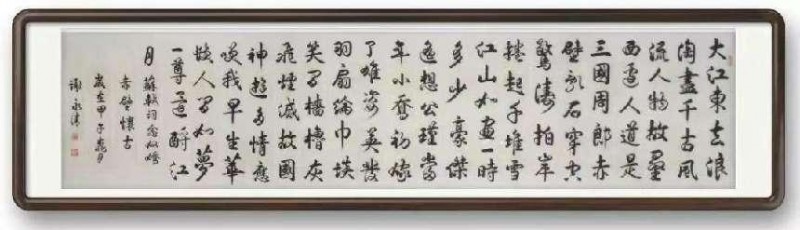 大江東去浪
淘盡千古風
流人物故壘
西邊人道是
三國周郎赤
壁亂石穿空
驚濤拍岸
捲起千堆雪
江山如畫一時
多少豪傑
遙想公瑾當
年小喬初嫁
了雄姿英發
羽扇綸巾談
笑間檣櫓灰
飛煙滅故國
神遊多情應
笑我早生華
髮人間如夢
一尊還酹江
月 蘇軾詞念奴嬌
赤壁懷古
歲在甲午